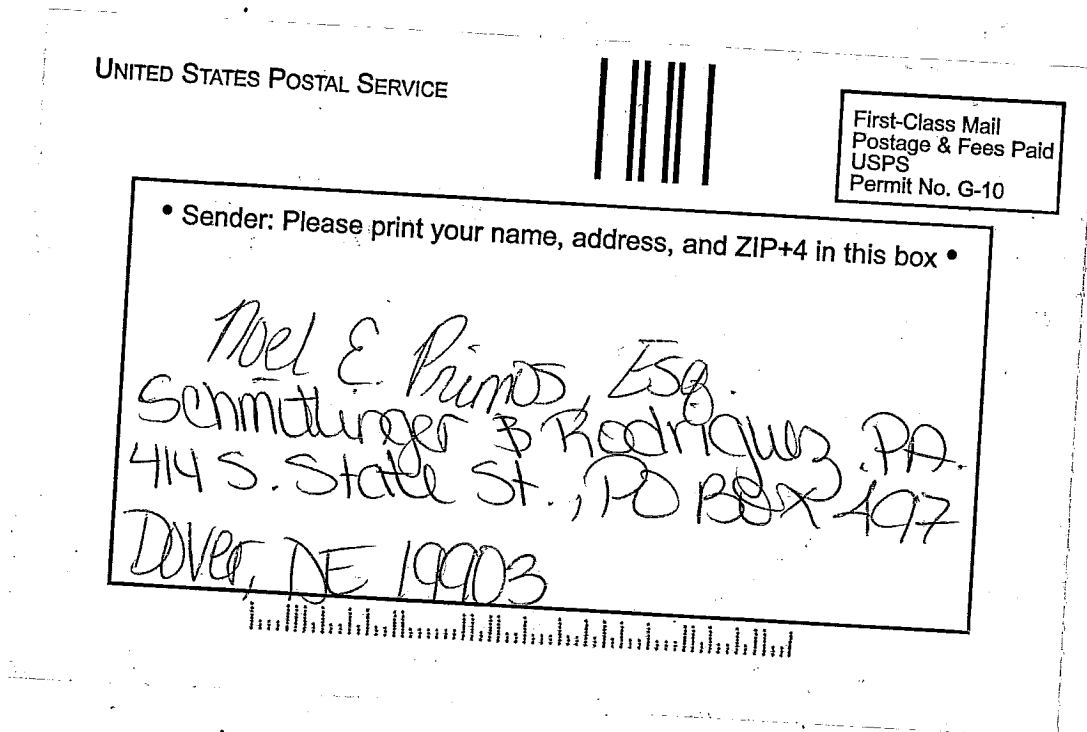 UNITED STATES POSTAL SERVICE
First-Class Mail
Postage & Fees Paid
USPS
Permit No. G-10
• Sender: Please print your name, address, and ZIP+4 in this box •
Noel E. Primos, Esq.
Schmittinger & Rodriguez, P.A.
414 S. State St., PO Box 497
Dover, DE 19903